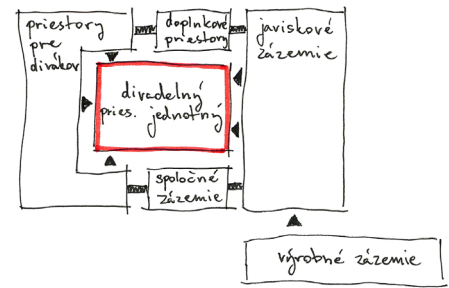 priestory
pre
divákov
doplnkové
priestory
javiskové
zázemie
divadelný
pries. jednotný
spoločné
zázemie
výrobné zázemie